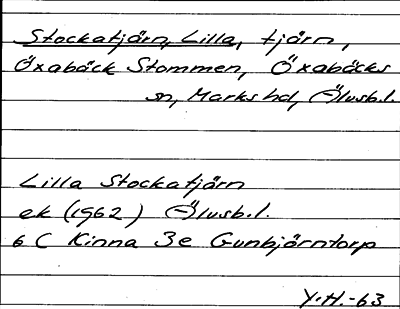 Stockatjärn, Lilla, tjärn,
Öxabäck Stommen, Öxabäcks
sn, Marks hd, Älvsb.l.
Lilla Stockatjärn
ek (1962) Älvsb.l.
6 C Kinna 3e Gunbjörntorp
Y.H.-63